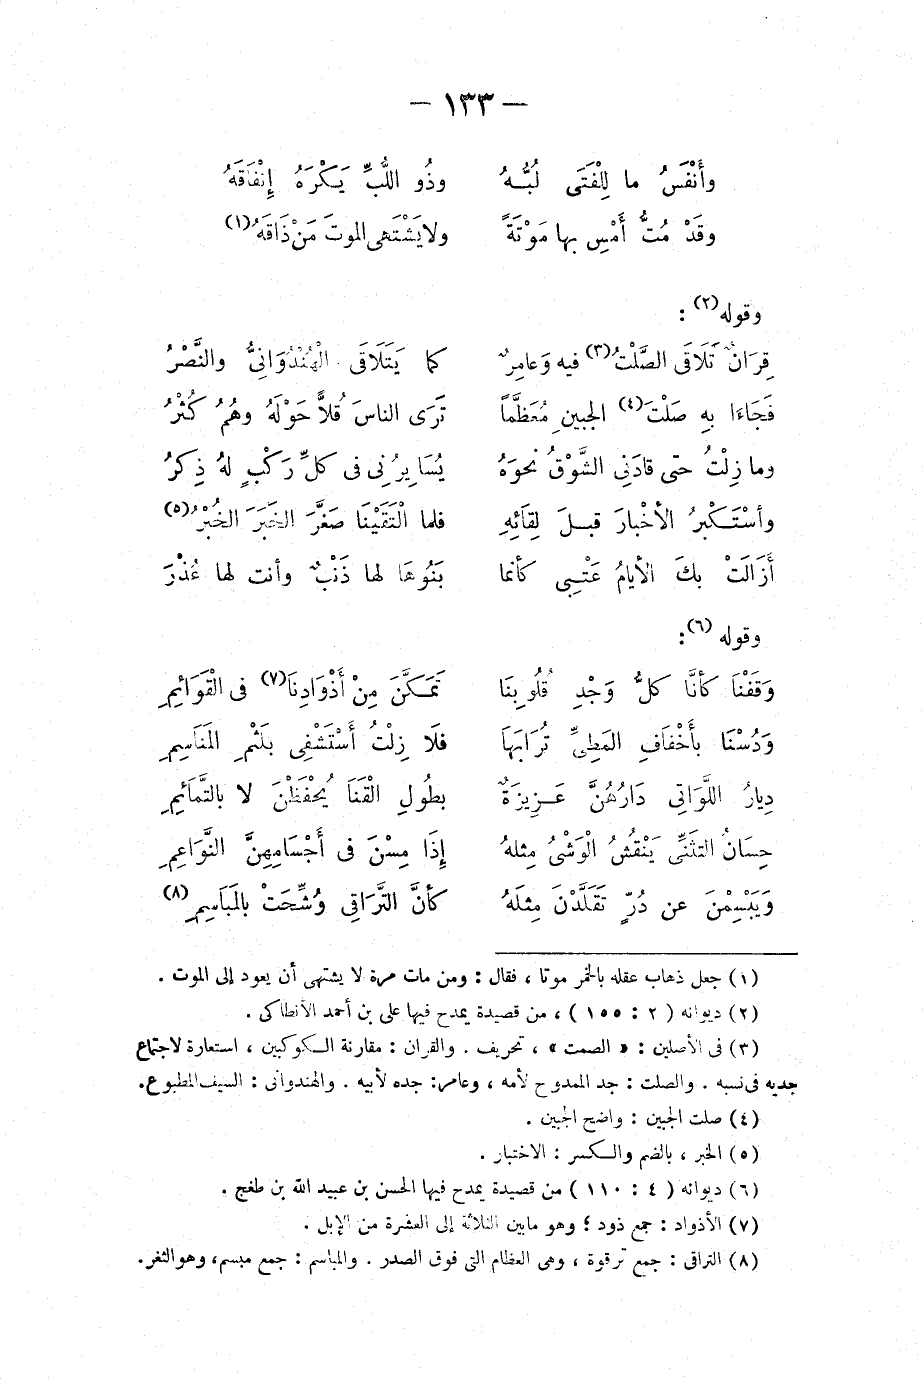 — ١٣٣ —
وأَنْفَسُ ما لِلْفَتَى لُبُّـهُ وذُو اللُّبِّ يَـكْرَهُ إِنْفَاقَهُ
وقَدْ مُتُّ أَمْسِ بها مَوْتَةً ولا يَشْتَهى الموتَ مَنْ ذَاقَهُ(١)
وقوله(٢) :
قِرَانٌ تَلَاقَى الصَّلْتُ(٣) فيه وَعامِرٌ كما يَتَلَاقَى الْهُنْدُوَانِىُّ والنَّصْرُ
فَجَاءَا بِهِ صَلْتَ(٤) الجبينِ مُعَظَّماً تَرَى الناسَ قُلاًّ حَوْلَهُ وهُمُ كُثْرُ
وما زِلْتُ حتى قادَنِى الشَّوْقُ نحوَهُ يُسَايرُنِى فى كلِّ رَكْبٍ لهُ ذِكرُ
وأسْتَـكْبِرُ الأخْبارَ قبـلَ لِقَائِهِ فلما الْتَقَيْنَا صَغَّرَ الخَبَرَ الخُبْرُ(٥)
أَزَالَتْ بكَ الأيامُ عَتْـبِى كأنما بَنُوهَا لها ذَنْبٌ وأنت لها عُذْرُ
وقوله(٦) :
وَقَفْنَا كأنَّا كلُّ وَجْدِ قُلُوبِنَا تَمَـكَّنَ مِنْ أَذْوَادِنَا(٧) فى الْقَوَائِمِ
وَدُسْنَا بأَخْفَافِ المَطِىِّ تُرَابَهَا فَلَا زِلْتُ أَسْتَشْفِى بلَثْمِ المَنَاسِمِ
دِيارُ اللَّوَاتِى دَارُهُنَّ عَـزِيزَةٌ بطُولِ الْقَنَا يُحْفَظْنَ لا بالتَّمائِمِ
حِسَانُ التثَنِّى يَنْقُشُ الْوَشْىُ مِثلهُ إذَا مِسْنَ فى أَجْسَامِهِنَّ النَّوَاعِمِ
وَيَبْسِمْنَ عن دُرٍّ تَقَلَّدْنَ مِثلَهُ كأنَّ التَّرَاقِى وُشِّحَتْ بالمَبَاسِمِ(٨)
(١) جعل ذهاب عقله بالخمر موتا ، فقال : ومن مات مرة لا يشتهى أن يعود إلى الموت .
(٢) ديوانه ( ٢ : ١٥٥ ) ، من قصيدة يمدح فيها على بن أحمد الأنطاكى .
(٣) فى الأصلين : « الصمت » ، تحريف . والقران : مقارنة الـكوكبين ، استعارة لاجتماع
جديه فى نسبه . والصلت : جد الممدوح لأمه ، وعامر: جده لأبيه . والهندوانى : السيف المطبوع.
(٤) صلت الجبين : واضح الجبين .
(٥) الخبر ، بالضم والـكسر : الاختبار .
(٦) ديوانه ( ٤ : ١١٠ ) من قصيدة يمدح فيها الحسن بن عبيد الله بن طغج .
(٧) الأذواد : جمع ذود ؛ وهو مابين الثلاثة إلى العشرة من الإبل .
(٨) التراقى : جمع ترقوة ، وهى العظام التى فوق الصدر . والمباسم : جمع مبسم، وهو الثغر.